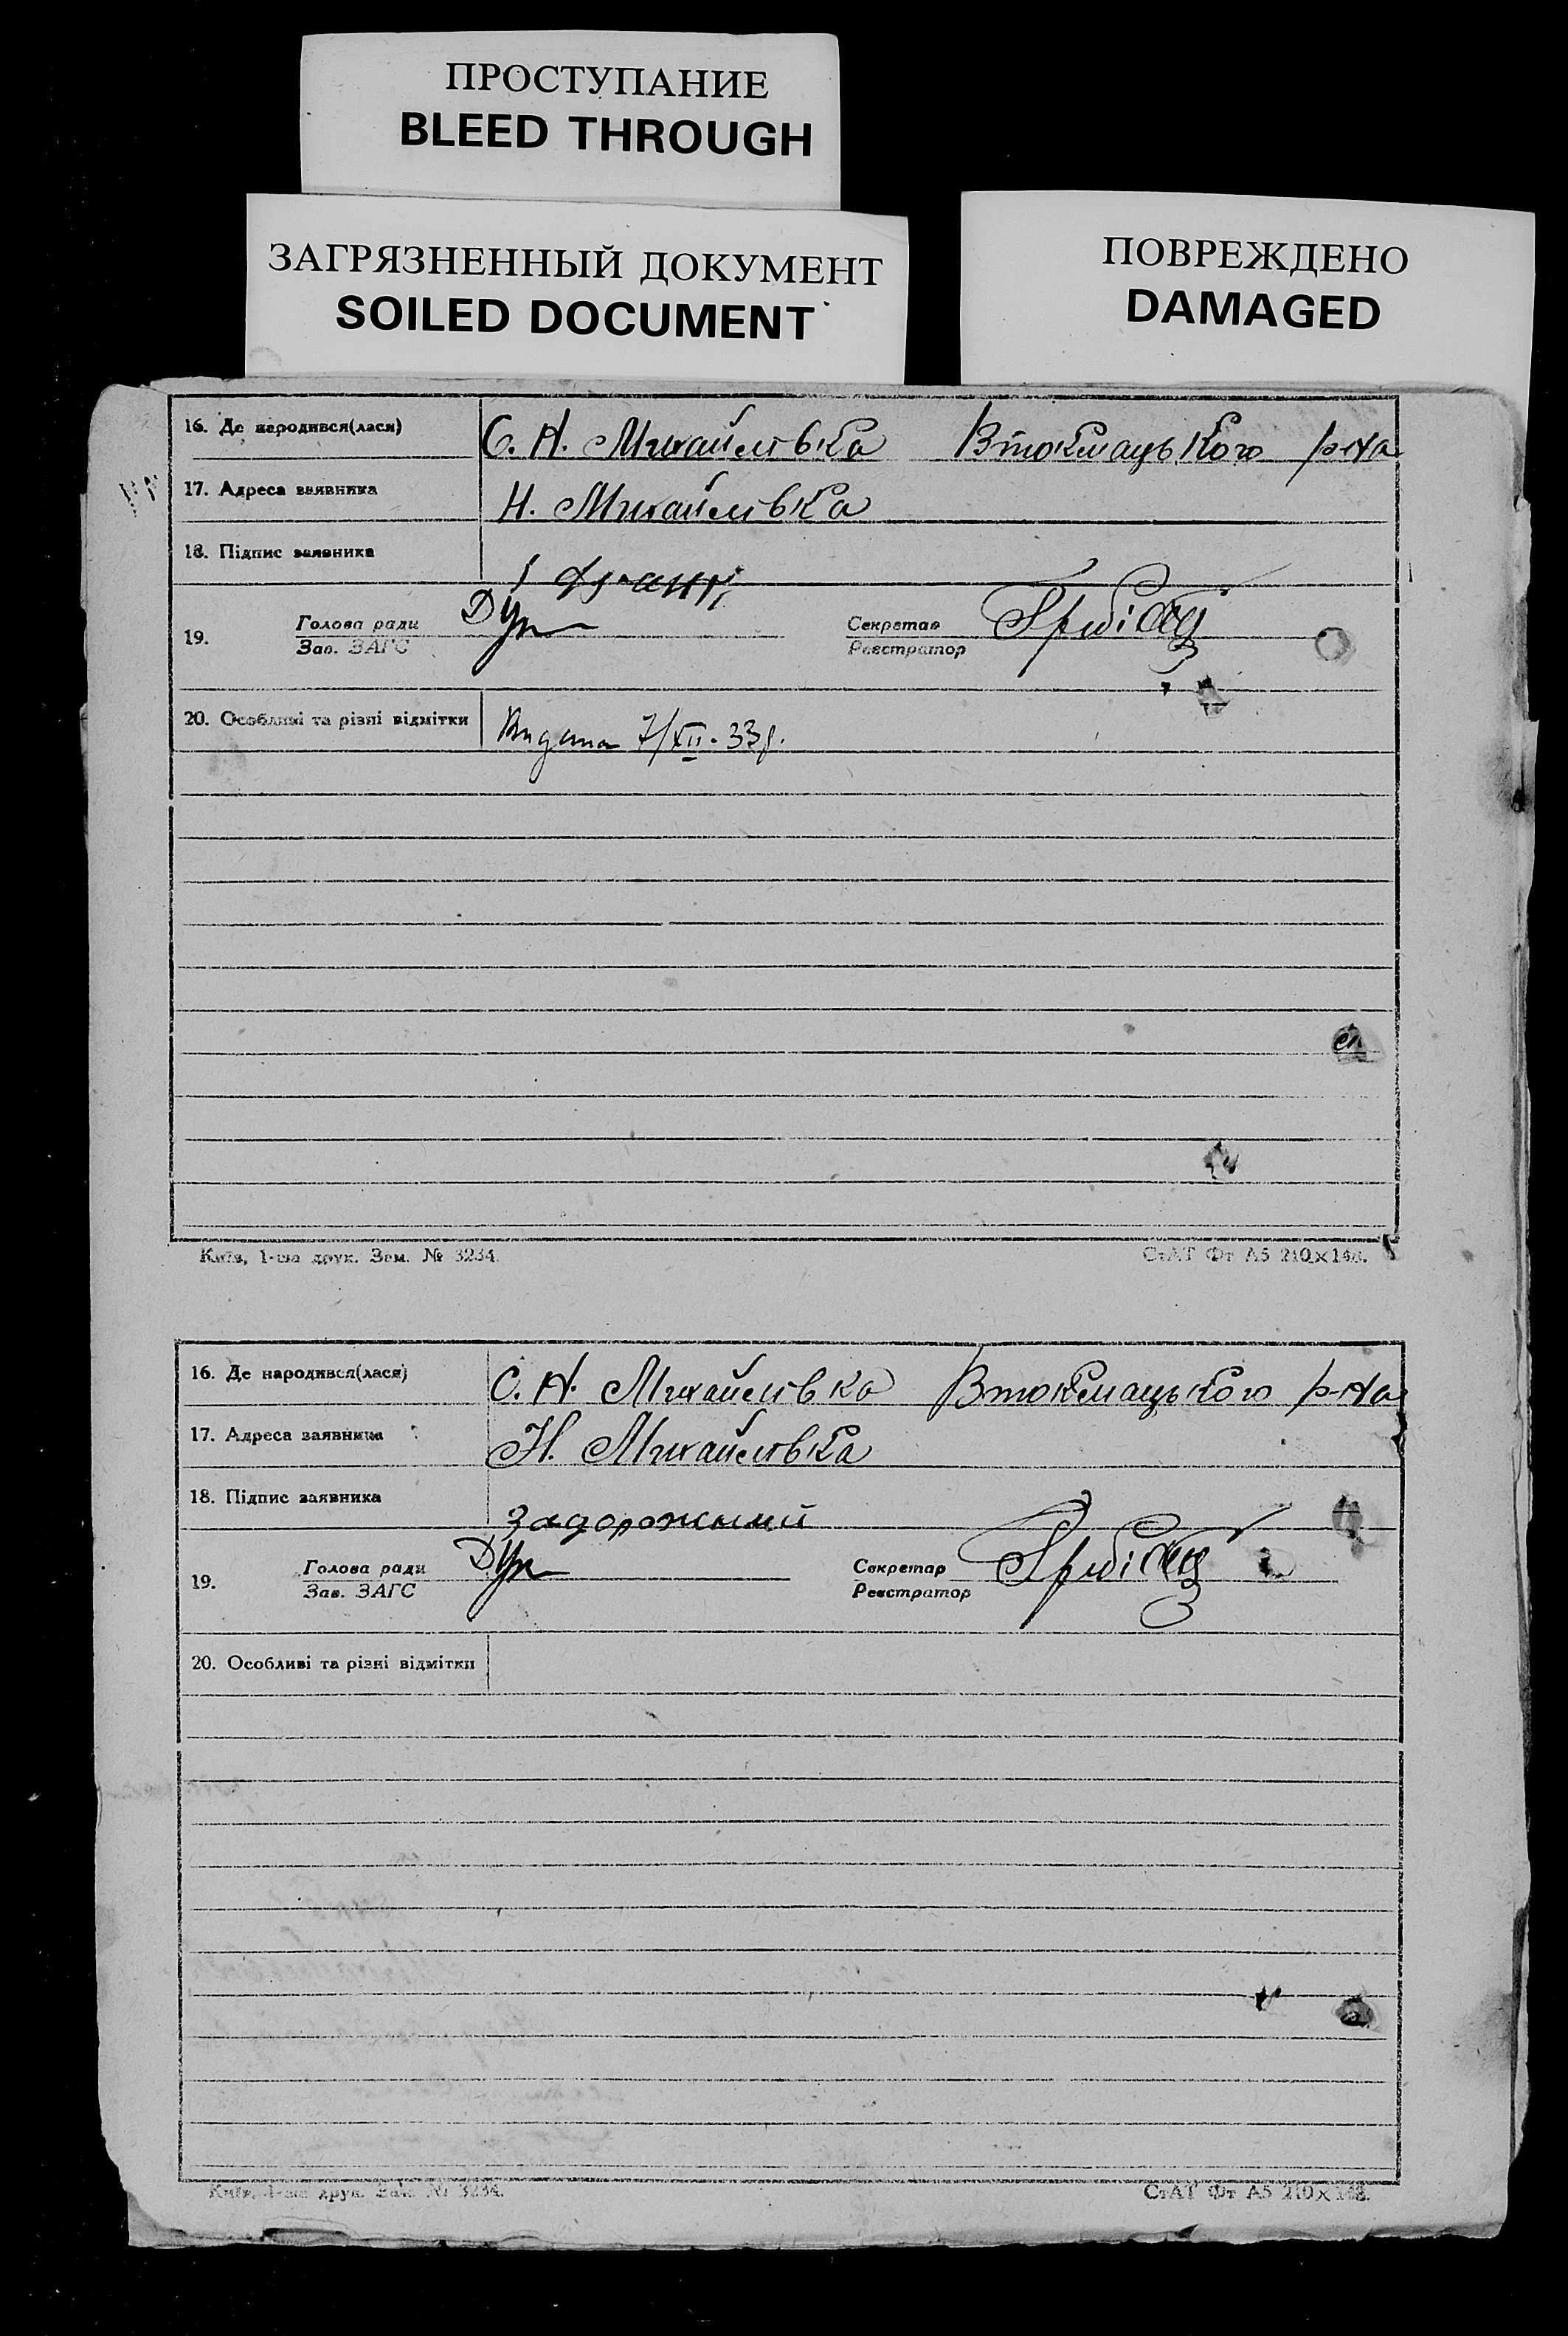 ПРОСТУПАНИЕ
BLEED THROUGH
ЗАГРЯЗНЕННЫЙ ДОКУМЕНТ
SOILED DOCUMENT
ПОВРЕЖДЕНО
DAMAGED
16. Де народився(лася) С. Н. Михайлівка Втокмацького р-на
17. Адреса заявника Н. Михайлівка
18. Підпис заявника
19. Голова ради Секретар
Зав. ЗАГС Реєстратор
20. Особливі та різні відмітки Видана 7/XII-33р.
Київ, 1-ша друк. Зам. № 3234. СтАТ Фт А5 210×148.
16. Де народився(лася) С. Н. Михайлівка Втокмацького р-на
17. Адреса заявника Н. Михайлівка
18. Підпис заявника Задорожний
19. Голова ради Секретар
Зав. ЗАГС Реєстратор
20. Особливі та різні відмітки
Київ, 1-ша друк. Зам. № 3234. СтАТ Фт А5 210×148.